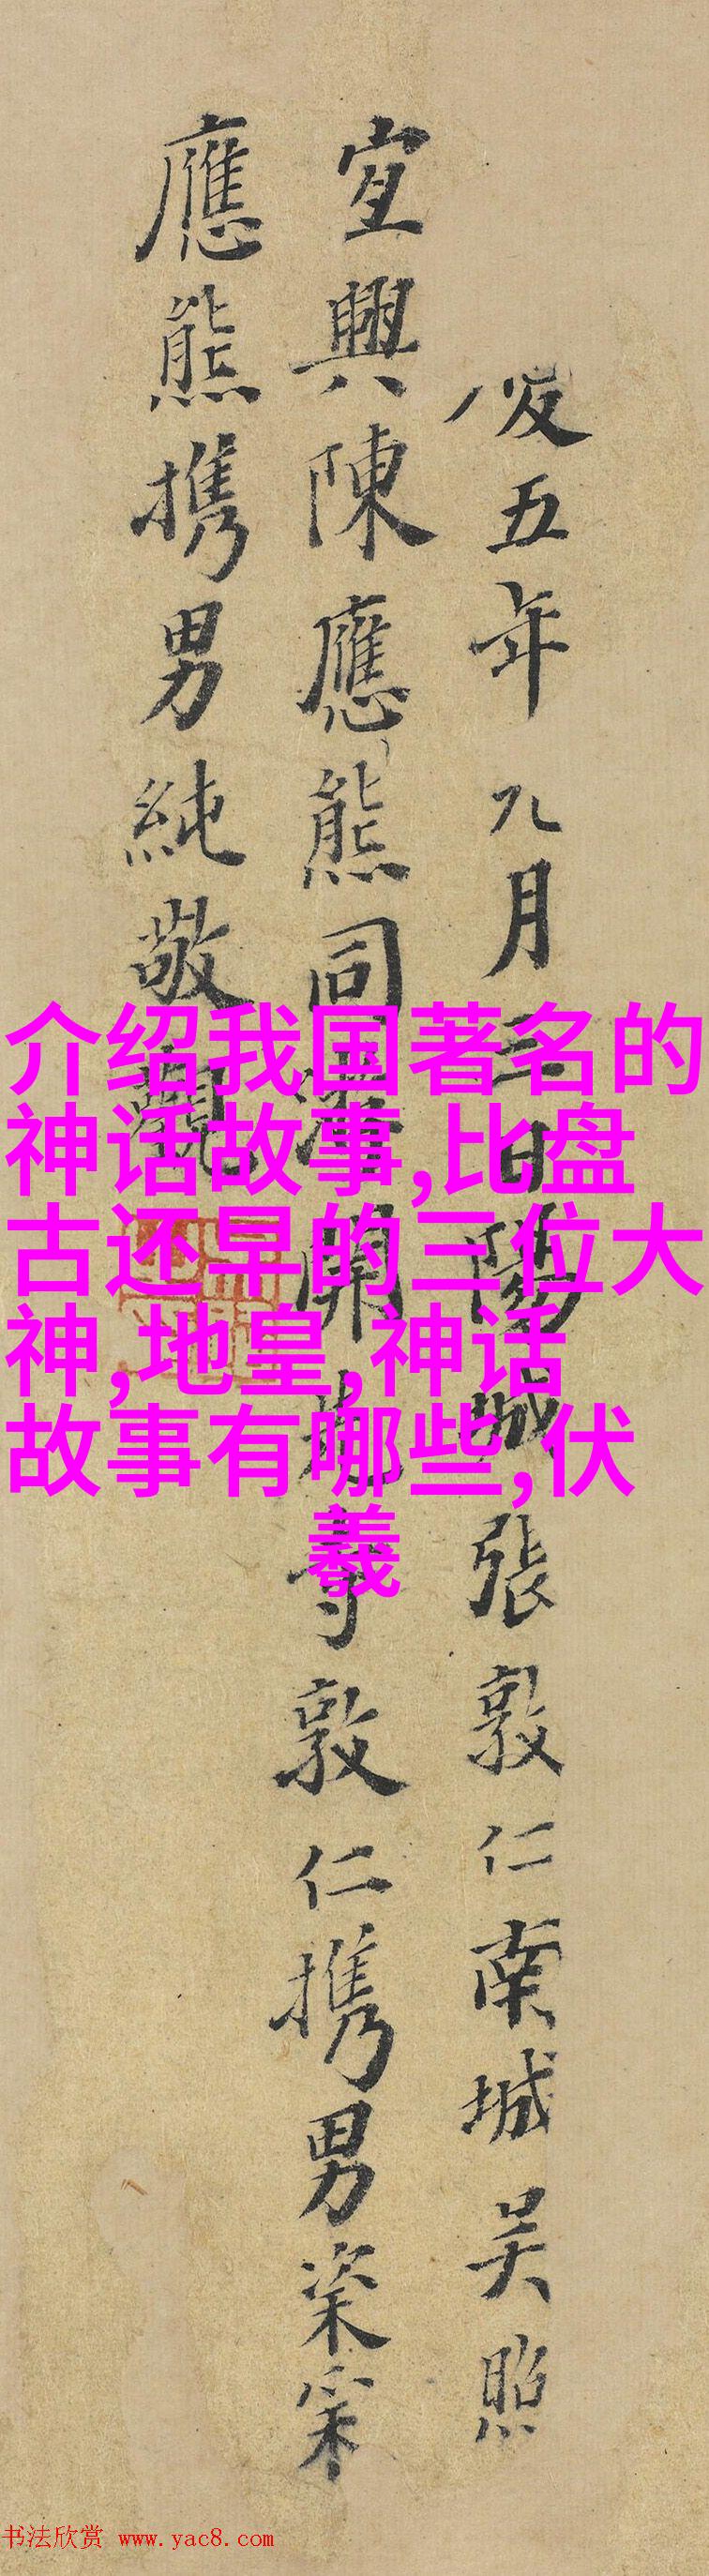 五年九月三日陽城張敦仁南城吴照
宜興陳應熊同
開
敦仁携男
應熊携男純敬觀
介绍我国著名的
神话故事,比盘
古还早的三位大
神,地皇,神话
故事有哪些,伏
羲
书法欣赏 www.yac8.com